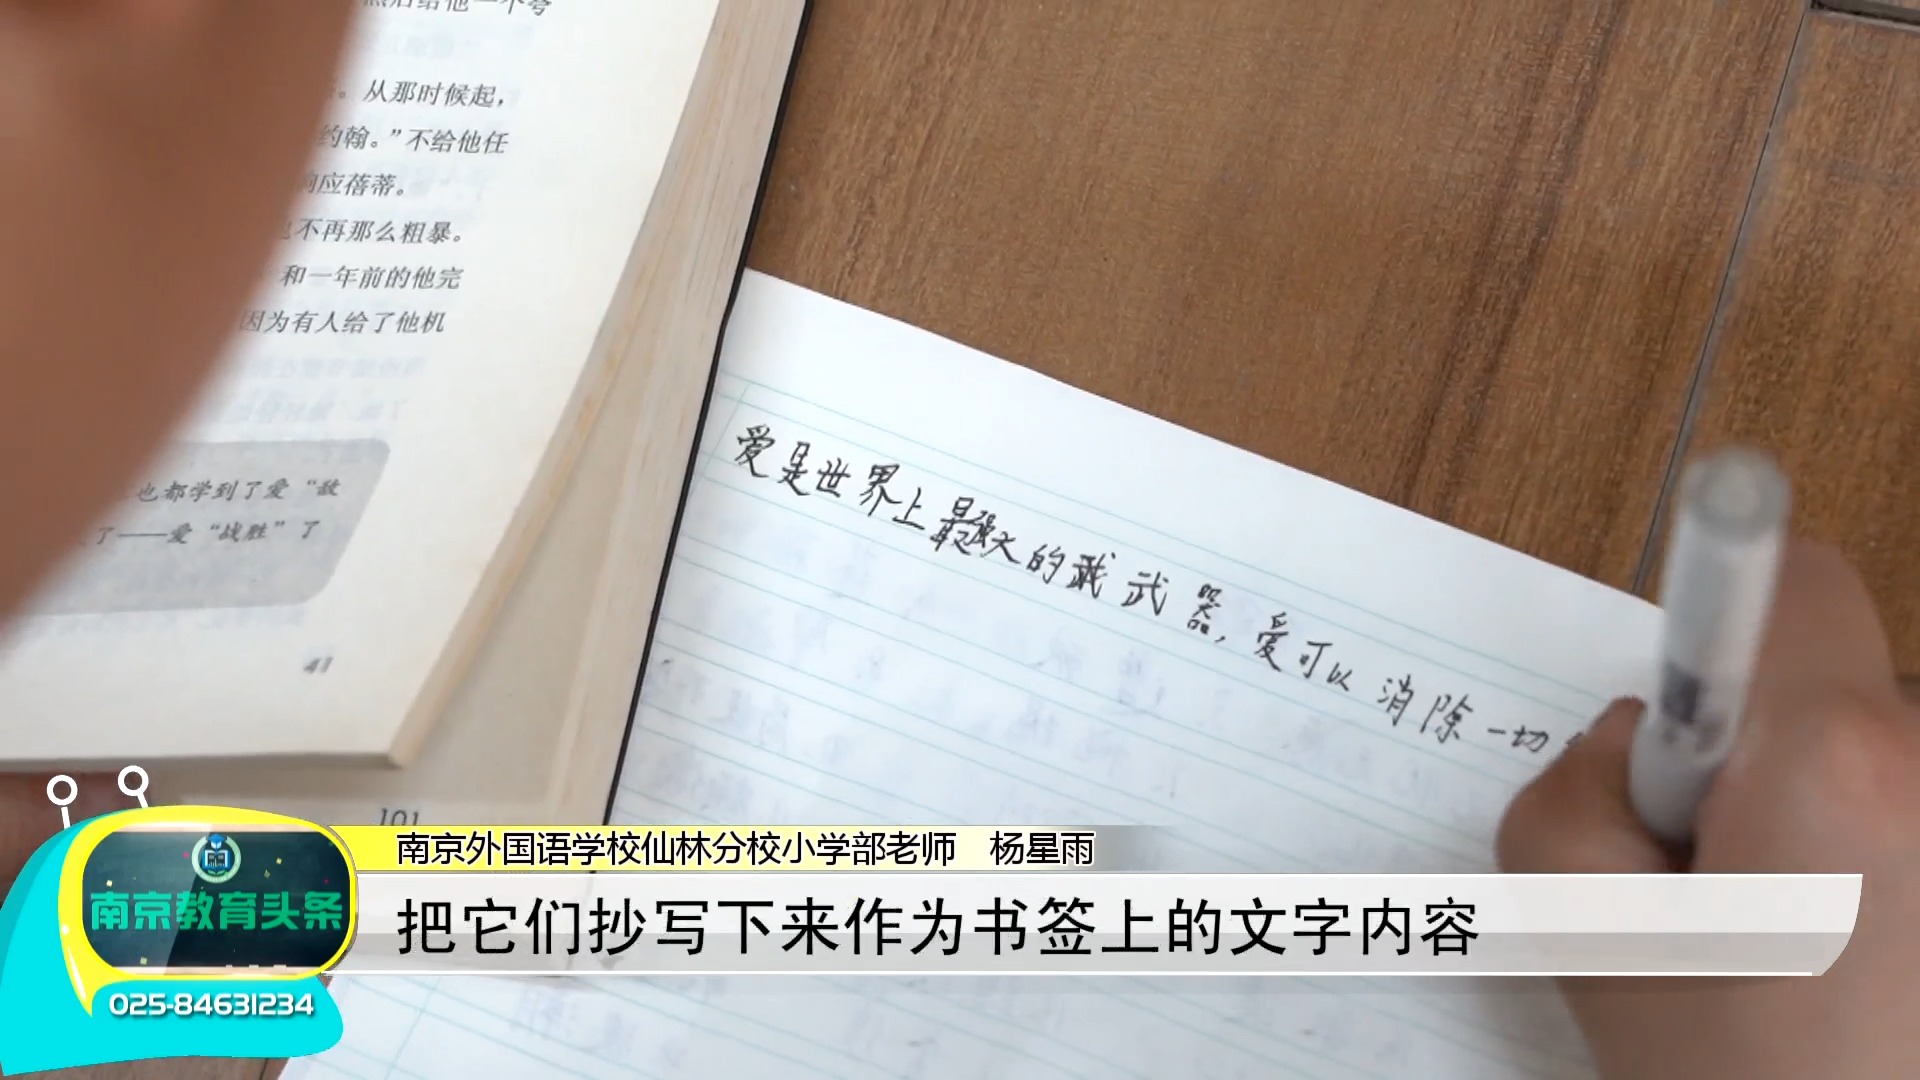 然后给他一个夸
。从那时候起，
约翰。”不给他任
响应蓓蒂。
也不再那么粗暴。
和一年前的他完
因为有人给了他机
也都学到了爱“敌
了——爱“战胜”了
41
101
爱是世界上最强大的武器，爱可以消除一切
南京外国语学校仙林分校小学部老师 杨星雨
把它们抄写下来作为书签上的文字内容
南京教育头条
025-84631234